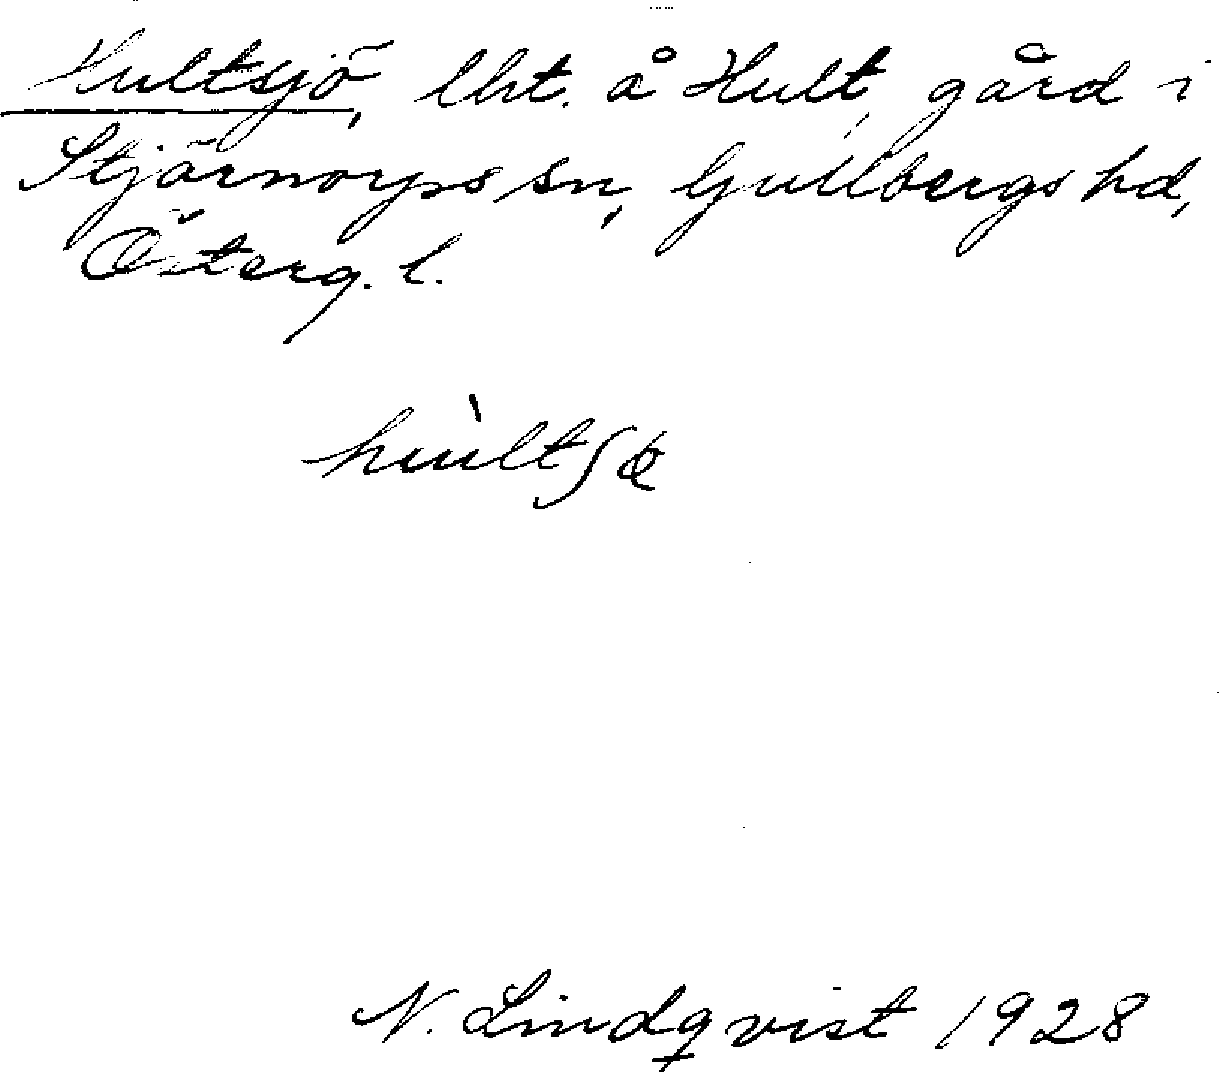 Hultsjö, lht. å Hult, gård i
Stjärnorps sn, Gullbergs hd,
Österg. l.
hùltʃœ
N. Lindqvist 1928